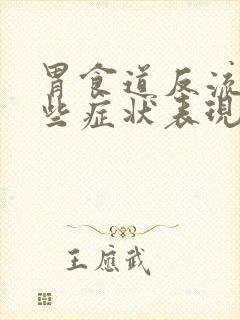 胃食道反流
些症状表現
王應武